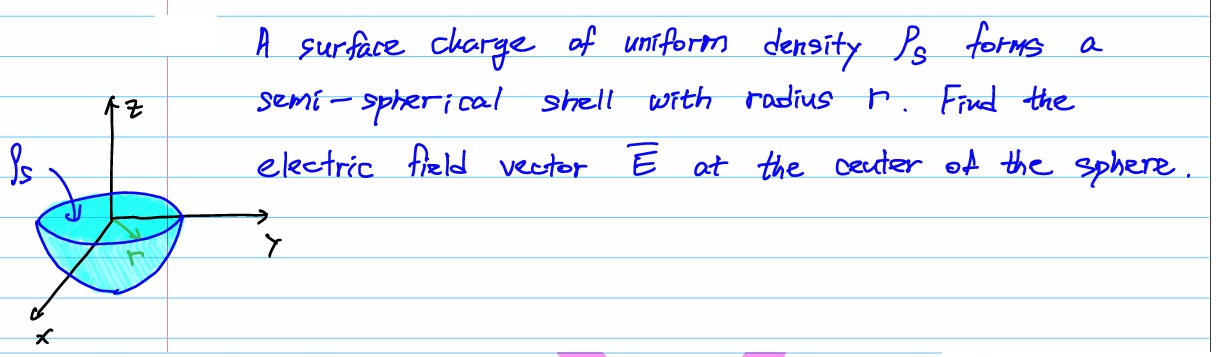 A surface charge of uniform density ρs forms a
semi-spherical shell with radius r. Find the
electric field vector E̅ at the center of the sphere.
z
ρs
r
Y
x